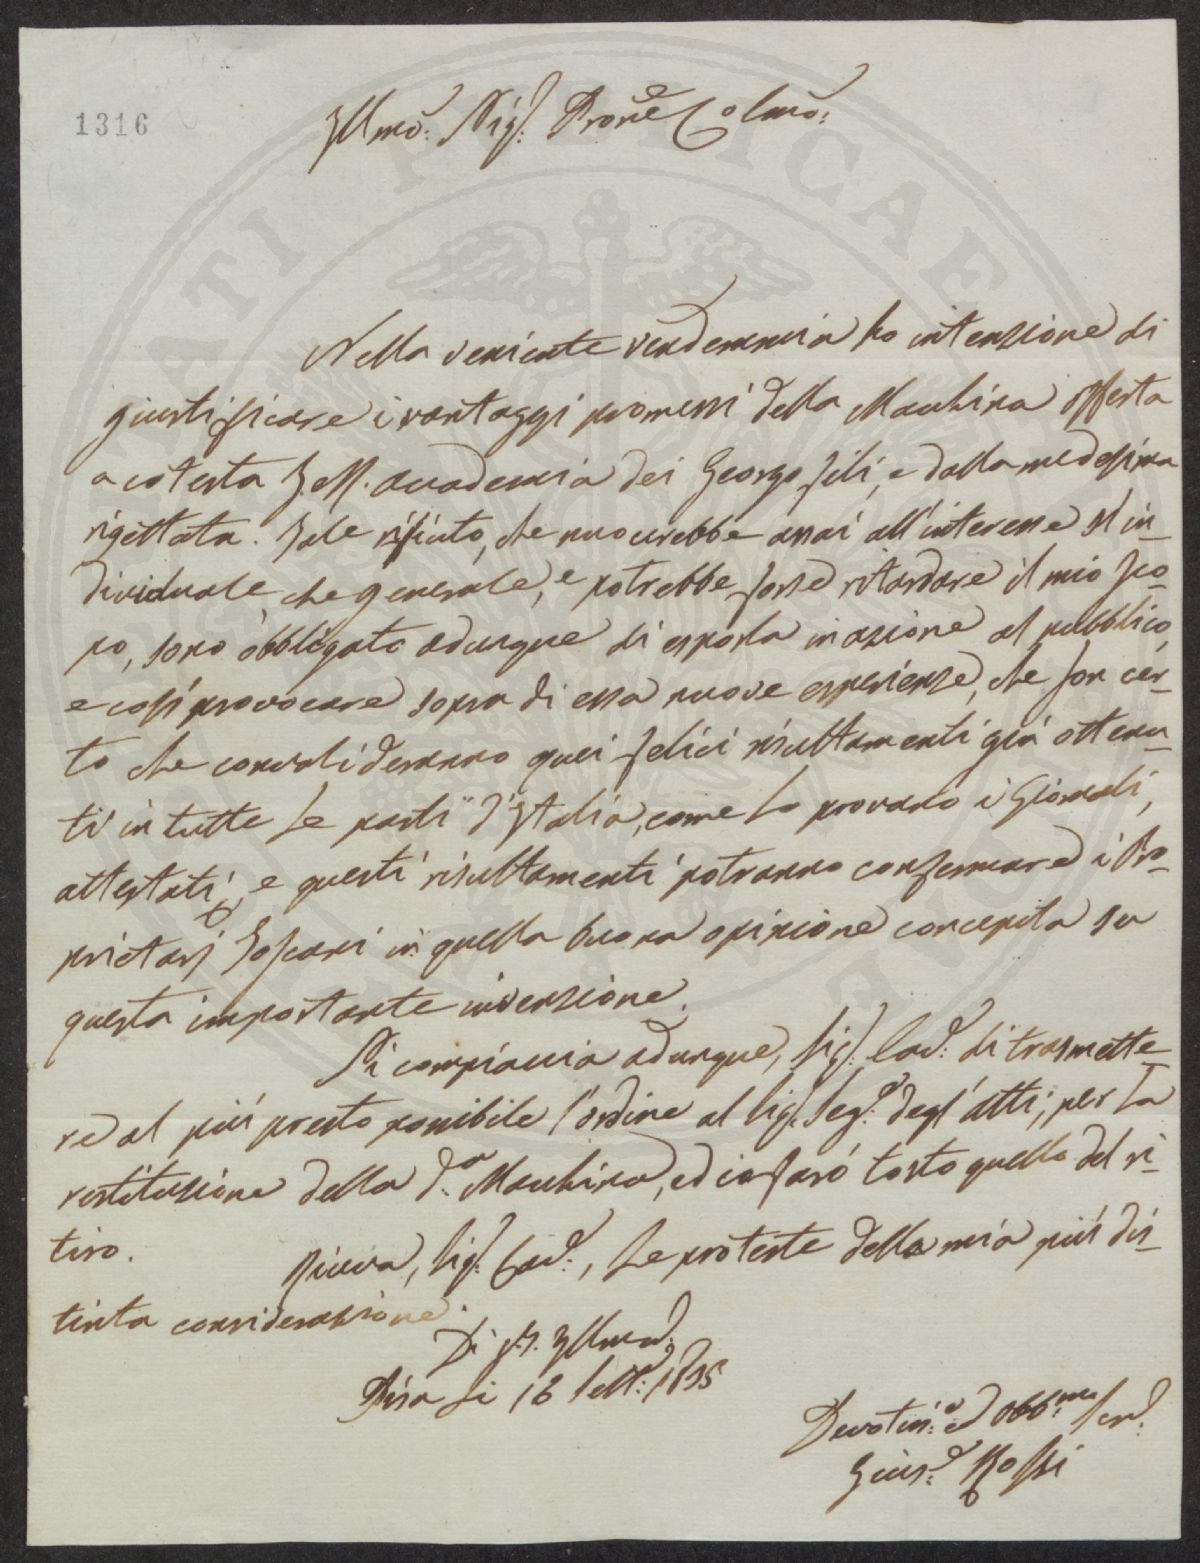 1316
Illmo: Sig.r Prone Colmo:
Nella veniente vendemmia ho intenzione di
giustificare i vantaggi promessi della Macchina offerta
a cotesta I. e R. accademia dei Georgofili, e dalla medesima
rigettata. Tale rifiuto, che nuocerebbe assai all'interesse sì in-
dividuale, che generale, e potrebbe forse ritardare il mio sco-
po, sono obbligato adunque di esporla in azione al pubblico,
e così provocare sopra di essa nuove esperienze, che son cer-
to che convalideranno quei felici risultamenti già ottenu-
ti in tutte le parti d'Italia, come lo provano i Giornali,
attestati, e questi risultamenti potranno confermare i Pro-
prietarj Toscani in quella buona opinione concepita su
questa importante invenzione.
Si compiaccia adunque, Sig.r Cav.e: di trasmette-
re al più presto possibile l'ordine al Sig.r Seg.o degl'atti, per la
restituzione della d.a Macchina, ed io farò tosto quello del ri-
tiro.
Riceva, Sig.r Cav.e:, le proteste della mia più dis-
tinta considerazione.
Di V.S. Illma
Pisa li 16 Sett.e: 1835
Devotis.o: ed Obb.mo Serv.e:
Gius.e: Rossi
ATI MEDICAE